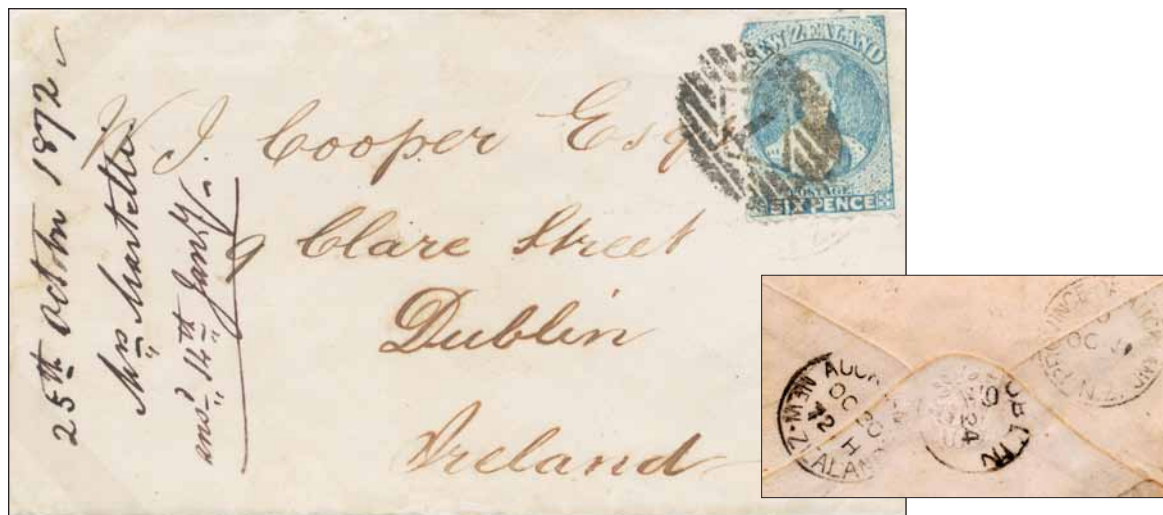 25th October 1872
Mrs Martelli
ansd 14th Jany/.
W. J. Cooper Esq
9 Clare Street
Dublin
Ireland
NEW ZEALAND
POSTAGE
SIX PENCE
AUCK
OC 30
72
H
NEW-ZEALAND
DUBLIN
24
OC